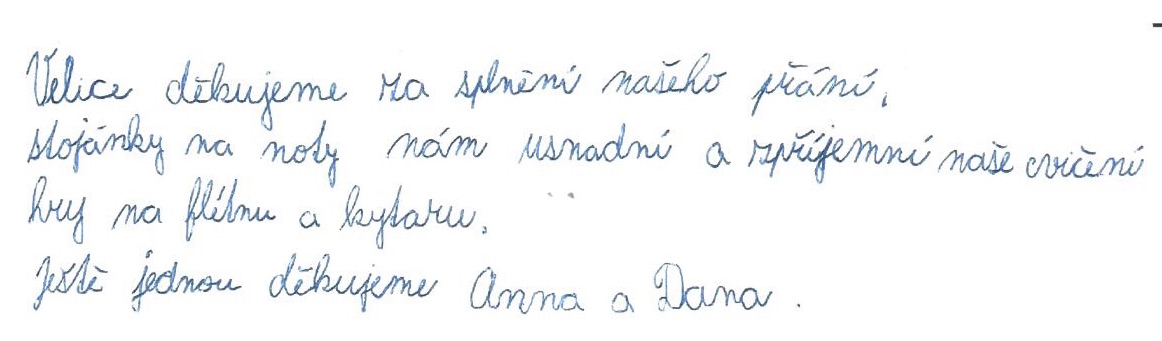 Velice děkujeme za splnění našeho přání,
stojánky na noty nám usnadní a zpříjemní naše cvičení
hry na flétnu a kytaru.
Ještě jednou děkujeme Anna a Dana.